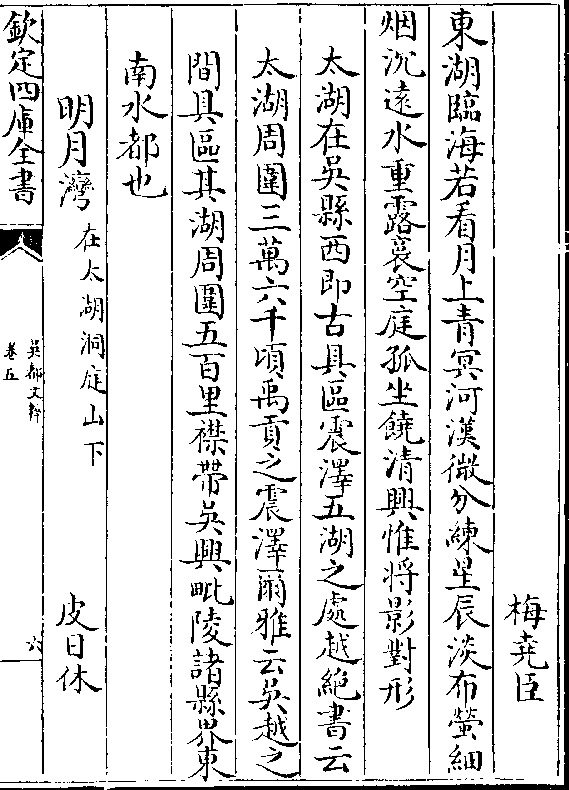 梅堯臣
東湖臨海若看月上青冥河漢微分練星辰淡布螢細
烟沉遠水重露裛空庭孤坐饒清興惟將影對形
太湖在吳縣西即古具區震澤五湖之處越絶書云
太湖周圍三萬六千頃禹貢之震澤爾雅云吳越之
間具區其湖周圍五百里襟帶吳興毗陵諸縣界東
南水都也
明月灣在太湖洞庭山下 皮日休
欽定四庫全書
吳都文粹
卷五
六